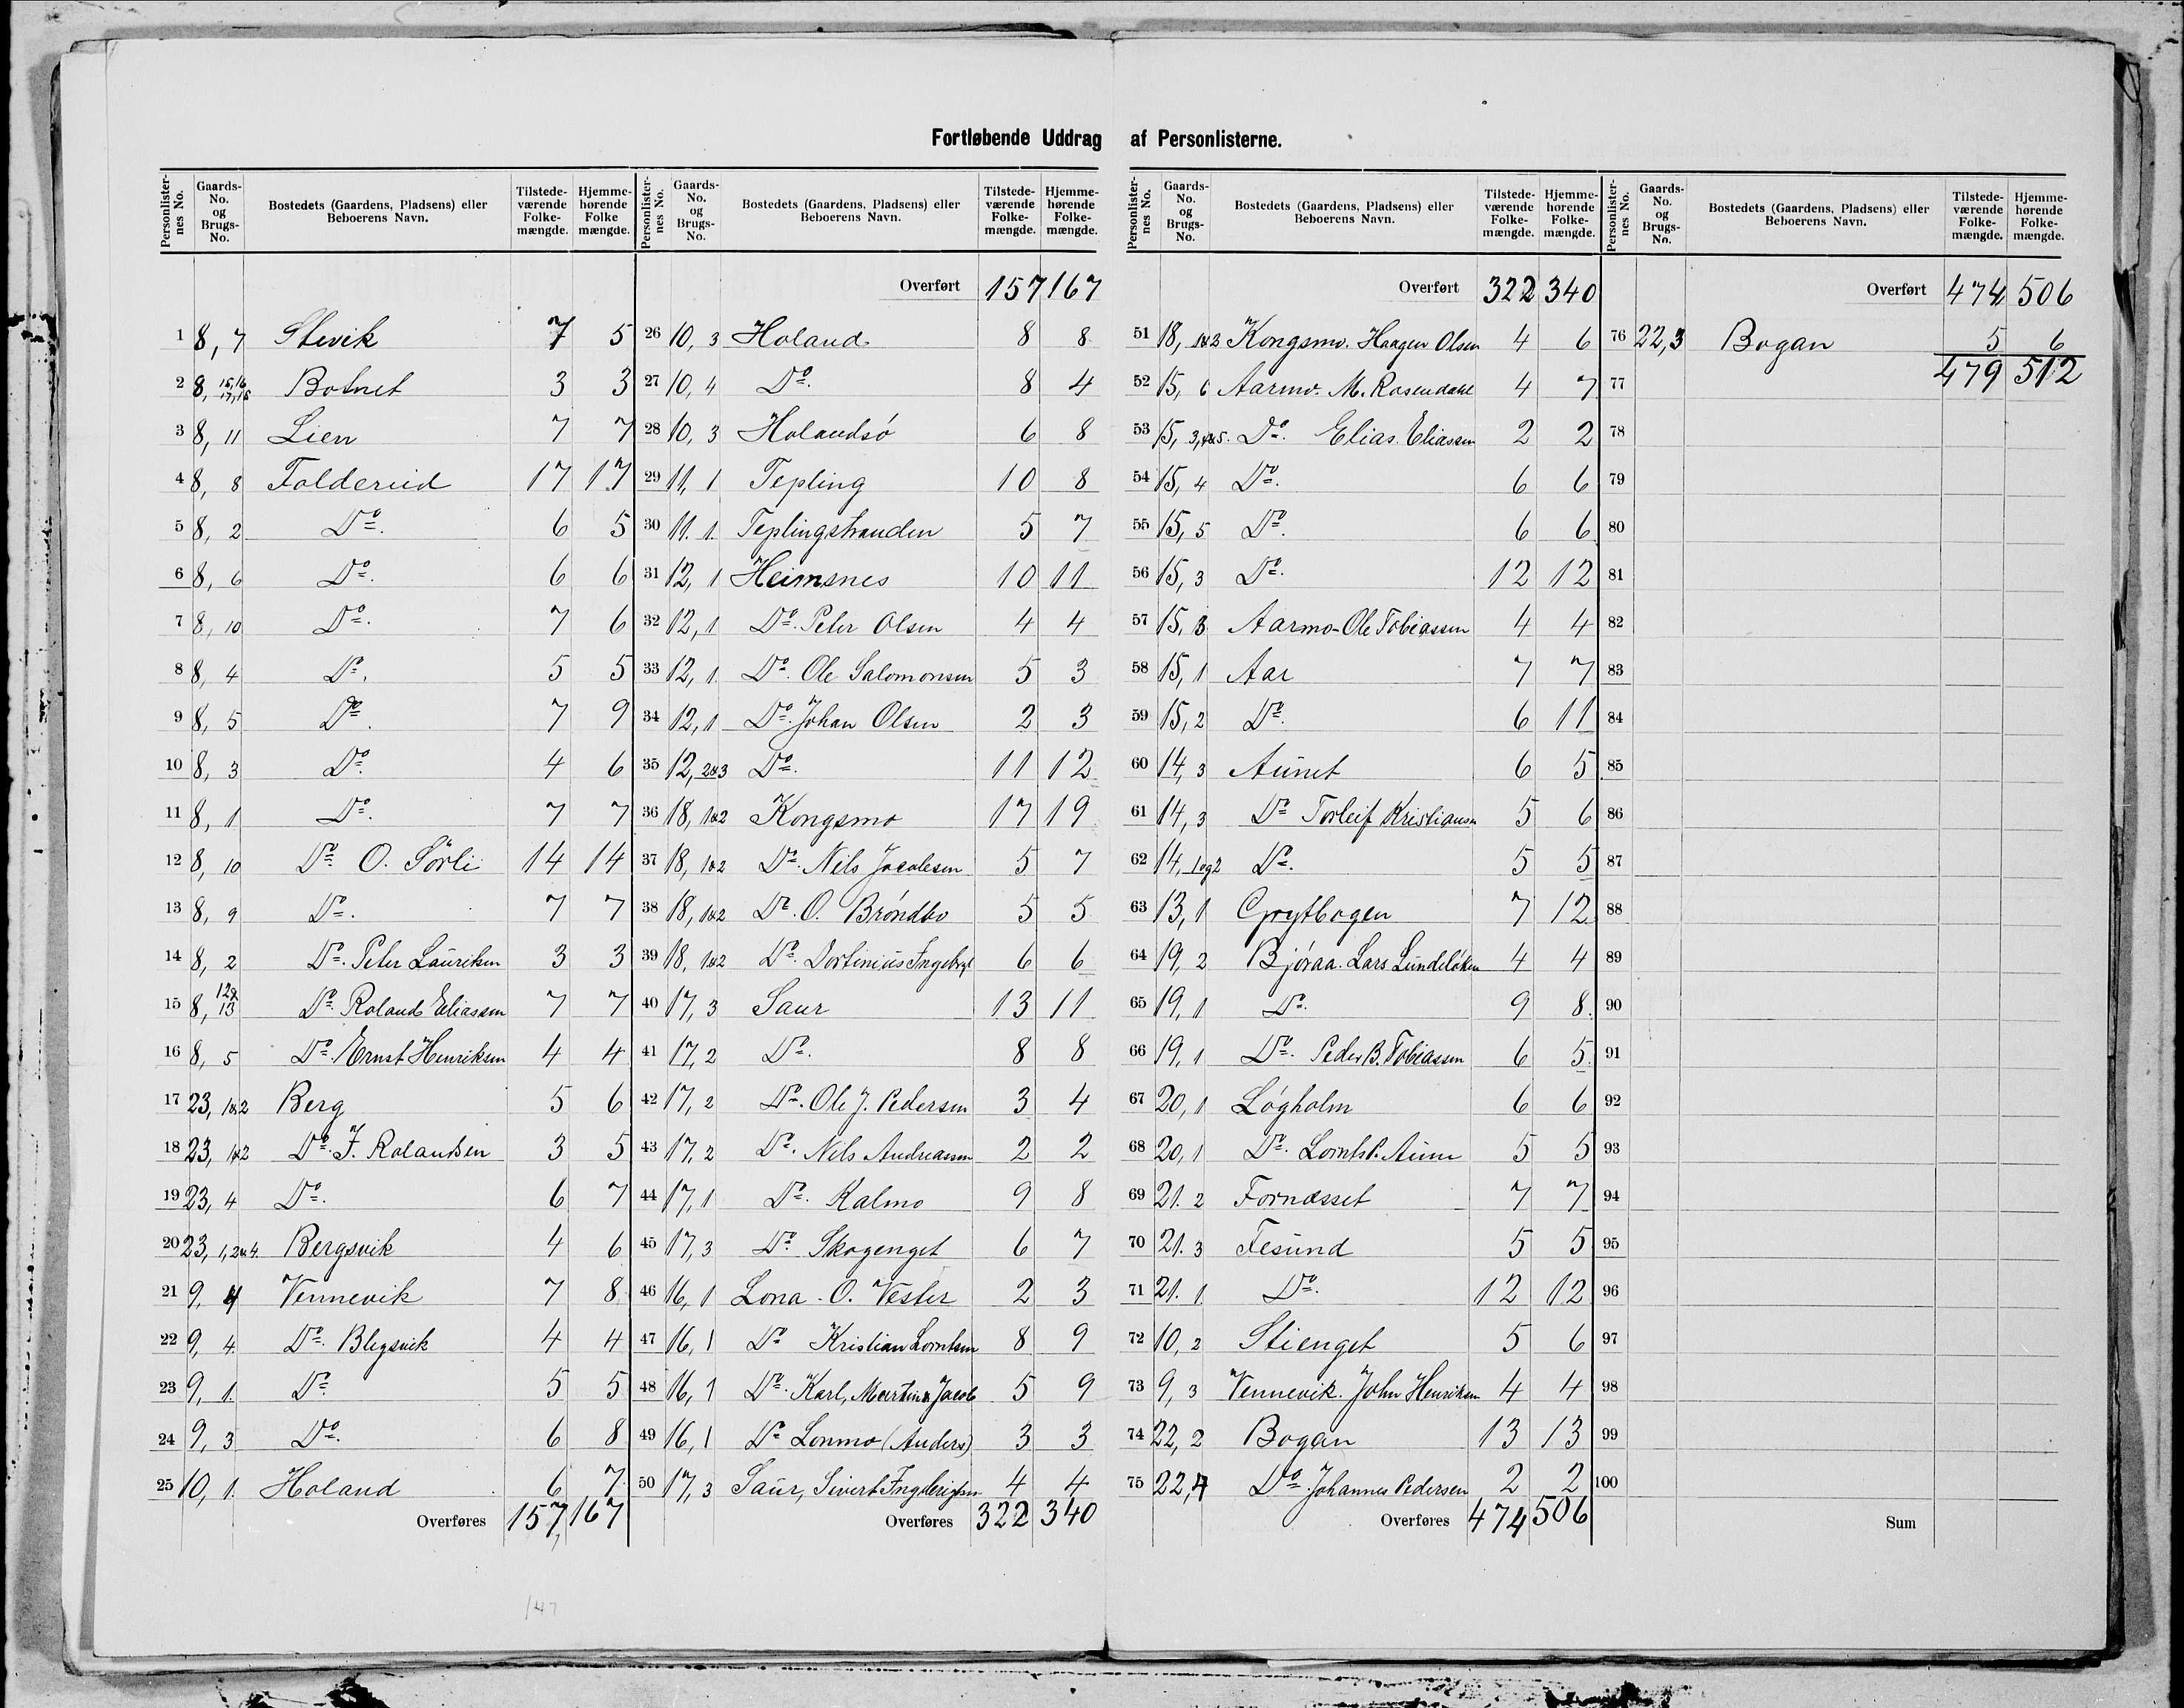 Fortløbende Uddrag af Personlisterne.
Personlister-nes No. | Gaards-No. og Brugs-No. | Bostedets (Gaardens, Pladsens) eller Beboerens Navn. | Tilstede-værende Folke-mængde. | Hjemme-hørende Folke mængde.
1 8, 7 Stevik 7 5
2 8, 15,16 17,18 Botnet 3 3
3 8, 11 Lien 7 7
4 8, 8 Foldereid 17 17
5 8, 2 Do. 6 5
6 8, 6 Do. 6 6
7 8, 10 Do. 7 6
8 8, 4 Do. 5 5
9 8, 5 Do. 7 9
10 8, 3 Do. 4 6
11 8, 1 Do. 7 7
12 8, 10 Do. O. Sörli 14 14
13 8, 9 Do. 7 7
14 8, 2 Do. Peter Lauritsen 3 3
15 8, 12& 13 Do. Roland Eliassen 7 7
16 8, 5 Do. Ernst Henriksen 4 4
17 23, 1&2 Berg 5 6
18 23, 1&2 Do. J. Rolandsen 3 5
19 23, 4 Do. 6 7
20 23, 1,2&4. Bergsvik 4 6
21 9, 4 Vennevik 7 8
22 9, 4. Do. Blegsvik 4 4
23 9, 1. Do. 5 5
24 9, 3 Do. 6 8
25 10, 1. Holand 6 7
Overføres 157 167
147
Personlister-nes No. | Gaards-No. og Brugs-No. | Bostedets (Gaardens, Pladsens) eller Beboerens Navn. | Tilstede-værende Folke-mængde. | Hjemme-hørende Folke-mængde.
Overført 157 167
26 10, 3 Holand 8 8
27 10, 4 Do. 8 4
28 10, 3 Holandsø 6 8
29 11, 1 Tepling 10 8
30 11. 1. Teplingstranden 5 7
31 12, 1 Heimsnes 10 11
32 12, 1 Do. Peter Olsen 4 4
33 12, 1. Do. Ole Salomonsen 5 3
34 12, 1 Do. Johan Olsen 2 3
35 12, 2&3 Do. 11 12
36 18, 1&2 Kongsmo 17 19
37 18, 1&2 Do. Nils Jacobsen 5 7
38 18, 1&2 Do. O. Brøndbo 5 5
39 18, 1&2 Do. Dortinius Ingebrgt 6 6
40 17, 3 Saur 13 11
41 17, 2 Do. 8 8
42 17, 2 Do. Ole J. Pedersen 3 4
43 17, 2 Do. Nils Andreassen 2 2
44 17, 1 Do. Kalmo 9 8
45 17, 3 Do. Skogenget 6 7
46 16, 1 Lona - O. Vester 2 3
47 16, 1 Do Kristian Lorntsen 8 9
48 16, 1 Do. Karl, Martin & Jacob 5 9
49 16, 1 Do Lonmo (Anders) 3 3
50 17, 3 Saur, Sivert Ingebrigtsen 4 4
Overføres 322 340
Personlister-nes No. | Gaards-No. og Brugs-No. | Bostedets (Gaardens, Pladsens) eller Beboerens Navn. | Tilstede-værende Folke-mængde. | Hjemme-hørende Folke-mængde.
Overført 322 340
51 18, 1&2 Kongsmo. Haagen Olsen 4 6
52 15, 6 Aarmo. M. Rosendahl 4 7
53 15, 3,4&5. Do. Elias Eliassen 2 2
54 15, 4 Do. 6 6
55 15, 5 Do. 6 6
56 15, 3 Do. 12 12
57 15, 3 Aarmo - Ole Tobiassen 4 4
58 15, 1 Aar 7 7
59 15, 2 Do. 6 11
60 14, 3 Aunet 6 5
61 14, 3 Do Torleif Kristiansen 5 6
62 14, 1og2 Do. 5 5
63 13, 1 Grytbogen 7 12
64 19, 2 Bjøraa. Lars Lundeløken 4 4
65 19, 1 Do. 9 8.
66 19, 1 Do. Peder B. Tobiassen 6 5
67 20, 1 Løgholm 6 6
68 20, 1 Do. Lornts P. Aune 5 5
69 21. 2 Fornæsset 7 7
70 21. 3 Fesund 5 5
71 21. 1 Do. 12 12
72 10, 2 Stienget 5 6
73 9, 3 Vennevik. John Henriksen 4 4
74 22, 2 Bogan 13 13
75 22, 4 Do. Johannes Pedersen 2 2
Overføres 474 506
Personlister-nes No. | Gaards-No. og Brugs-No. | Bostedets (Gaardens, Pladsens) eller Beboerens Navn. | Tilstede-værende Folke-mængde. | Hjemme-hørende Folke-mængde.
Overført 474 506
76 22, 3 Bogan 5 6
77 479 512
78
79
80
81
82
83
84
85
86
87
88
89
90
91
92
93
94
95
96
97
98
99
100
Sum